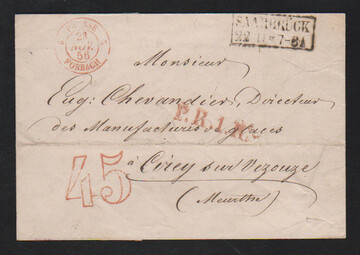 23
NOV.
56
FORBACH
SAARBRÜCK
22 11 * 7-8A
Monsieur
Eug: Chevandier, Directeur
P. R. 1. R.
des Manufactures de glaces
à Cirey sur Vezouze
45
(Meurthe)